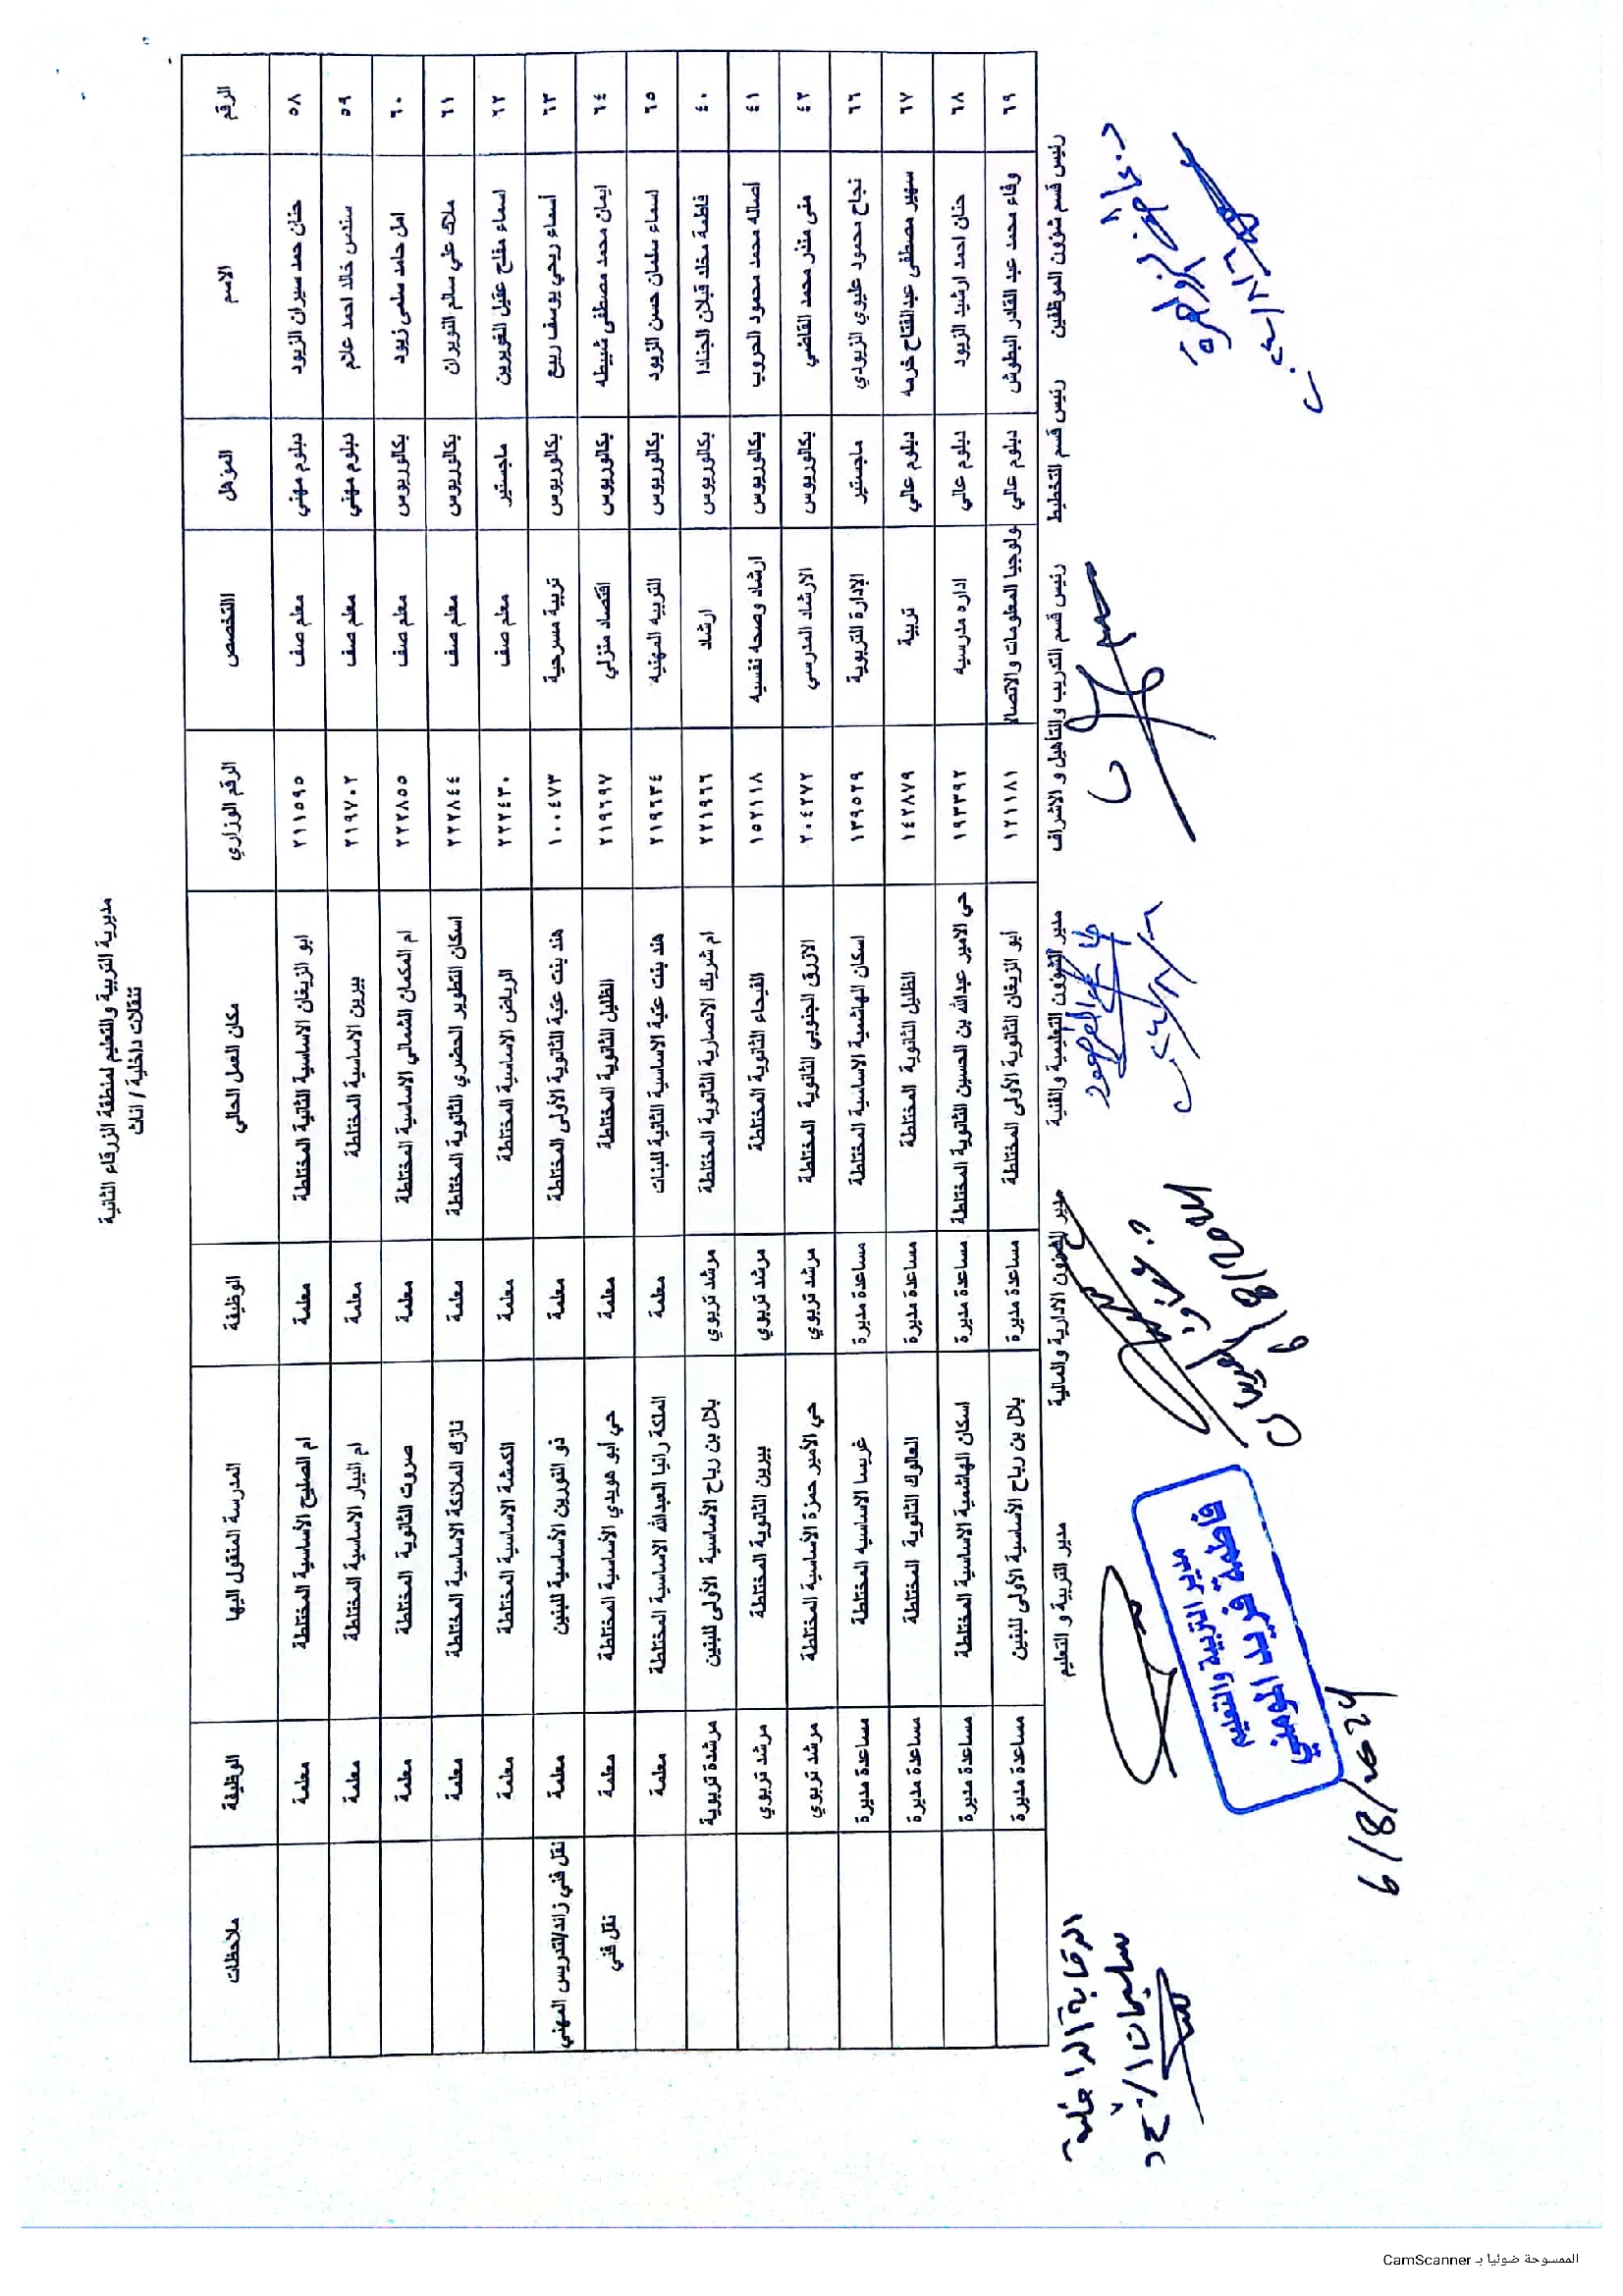 مديرية التربية والتعليم لمنطقة الزرقاء الثانية
تنقلات داخلية / اناث
الرقم الاسم المؤهل التخصص الرقم الوزاري مكان العمل الحالي الوظيفة المدرسة المنقول اليها الوظيفة ملاحظات
٥٨ حنان حمد سيران الزيود دبلوم مهني معلم صف ٢١١٥٩٥ ابو الزيغان الاساسية الثانية المختلطة معلمة ام الصليح الأساسية المختلطة معلمة
٥٩ سندس خالد احمد علام دبلوم مهني معلم صف ٢١٩٧٠٢ بيرين الاساسية المختلطة معلمة ام البيار الاساسية المختلطة معلمة
٦٠ امل حامد سلمى زيود بكالوريوس معلم صف ٢٢٢٨٥٥ ام المكمان الشمالي الاساسية المختلطة معلمة صروت الثانوية المختلطة معلمة
٦١ ملاك علي سالم النويران بكالوريوس معلم صف ٢٢٢٨٤٤ اسكان التطوير الحضري الثانوية المختلطة معلمة نازك الملائكة الاساسية المختلطة معلمة
٦٢ اسماء مفلح عقيل الغويرين ماجستير معلم صف ٢٢٢٤٣٠ الرياض الاساسية المختلطة معلمة الكمشة الاساسية المختلطة معلمة
٦٣ أسماء ربحي يوسف ربيع بكالوريوس تربية مسرحية ١٠٠٤٧٣ هند بنت عتبة الثانوية الأولى المختلطة معلمة ذو النورين الأساسية للبنين معلمة نقل فني زائد/لتدريس المهني
٦٤ ايمان محمد مصطفى شبيطه بكالوريوس اقتصاد منزلي ٢١٩٦٩٧ الظليل الثانوية المختلطة معلمة حي أبو هويدي الأساسية المختلطة معلمة نقل فني
٦٥ اسماء سلمان حسن الزيود بكالوريوس التربيه المهنيه ٢١٩٦٣٤ هند بنت عتبة الاساسية الثانية للبنات معلمة الملكة رانيا العبدالله الاساسية المختلطة معلمة
٤٠ فاطمة مخلد قبلان الجنادا بكالوريوس ارشاد ٢٢١٩٦٦ ام شريك الانصارية الثانوية المختلطة مرشد تربوي بلال بن رباح الأساسية الأولى للبنين مرشدة تربوية
٤١ أصاله محمد محمود الحروب بكالوريوس ارشاد وصحه نفسيه ١٥٢١١٨ الفيحاء الثانوية المختلطة مرشد تربوي بيرين الثانوية المختلطة مرشد تربوي
٤٢ منى منذر محمد القاضي بكالوريوس الارشاد المدرسي ٢٠٤٢٧٢ الازرق الجنوبي الثانوية المختلطة مرشد تربوي حي الأمير حمزة الأساسية المختلطة مرشد تربوي
٦٦ نجاح محمود عليوي الزيودي ماجستير الإدارة التربوية ١٣٩٥٢٩ اسكان الهاشمية الاساسية المختلطة مساعدة مديرة غريسا الاساسيه المختلطة مساعدة مديرة
٦٧ سهير مصطفى عبدالفتاح خرمه دبلوم عالي تربية ١٤٢٨٧٩ الظليل الثانوية المختلطة مساعدة مديرة العالوك الثانوية المختلطة مساعدة مديرة
٦٨ حنان احمد ارشيد الزيود دبلوم عالي اداره مدرسيه ١٩٣٣٩٢ حي الامير عبدالله بن الحسين الثانوية المختلطة مساعدة مديرة اسكان الهاشمية الاساسية المختلطة مساعدة مديرة
٦٩ وفاء محمد عبد القادر البطوش دبلوم عالي ولوجيا المعلومات والاتصالا ١٢١١٨١ أبو الزيغان الثانوية الأولى المختلطة مساعدة مديرة بلال بن رباح الأساسية الأولى للبنين مساعدة مديرة
رئيس قسم شؤون الموظفين رئيس قسم التخطيط رئيس قسم التدريب والتأهيل و الاشراف مدير الشؤون التعليمية والفنية مدير الشؤون الادارية والمالية مدير التربية و التعليم
الرقابة الداخلية
مدير التربية والتعليم
فاطمة فريد المومني
6/8/2024
الممسوحة ضوئيا بـ CamScanner